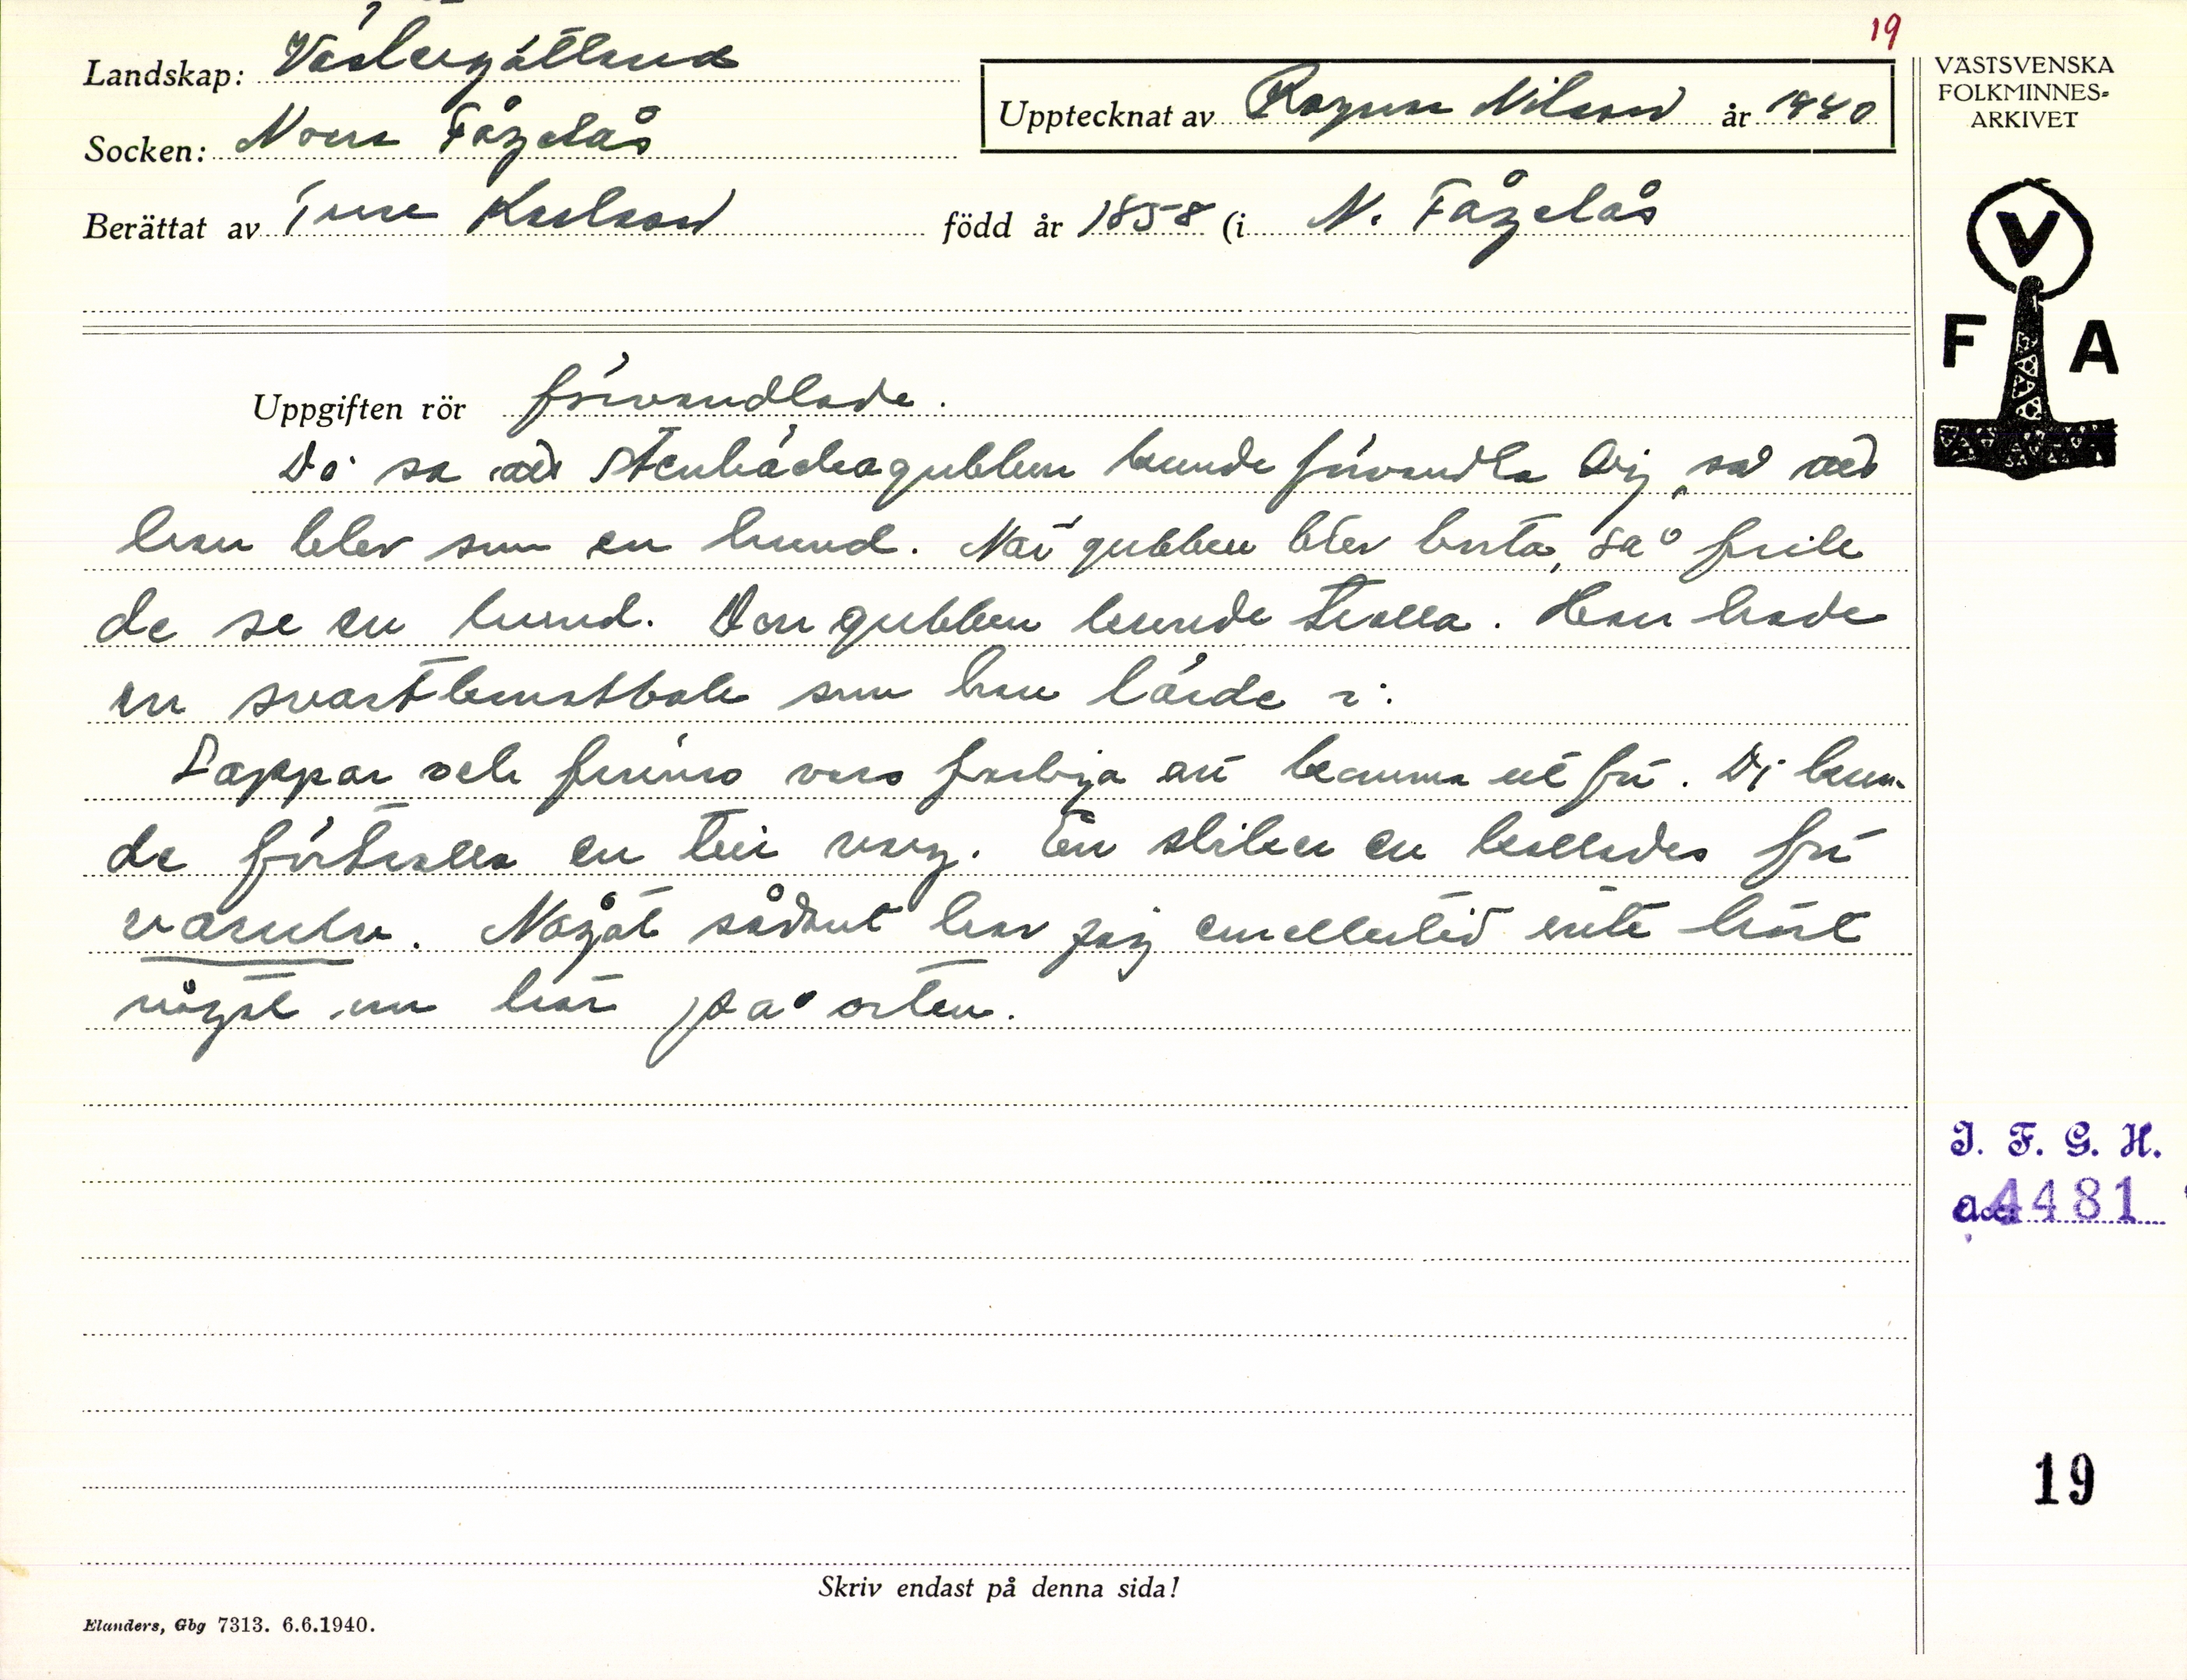 19
Landskap: Västergötland
Socken: Norra Fågelås
Upptecknat av Ragnar Nilsson år 1940
Berättat av Ture Karlsson född år 1858 (i N. Fågelås
VÄSTSVENSKA
FOLKMINNES-
ARKIVET
V
F A
Uppgiften rör förvandlade.
Di sa att gubben kunde förvandla sig, så att
han blev som en hund. När gubben blev borta, så fick
de se en hund. Den gubben kunde trolla. Han hade
en svartkonstbok som han lärde i.
Lappar och finnar va farliga att komma ut för. Di kun-
de förtrolla en till varg. En sliken en kallades för
varulv. Något sådant har jag emellertid inte hört
något om här på orten.
I. F. G. H.
acc. 4481
19
Skriv endast på denna sida!
Elanders, Gbg 7313. 6.6.1940.